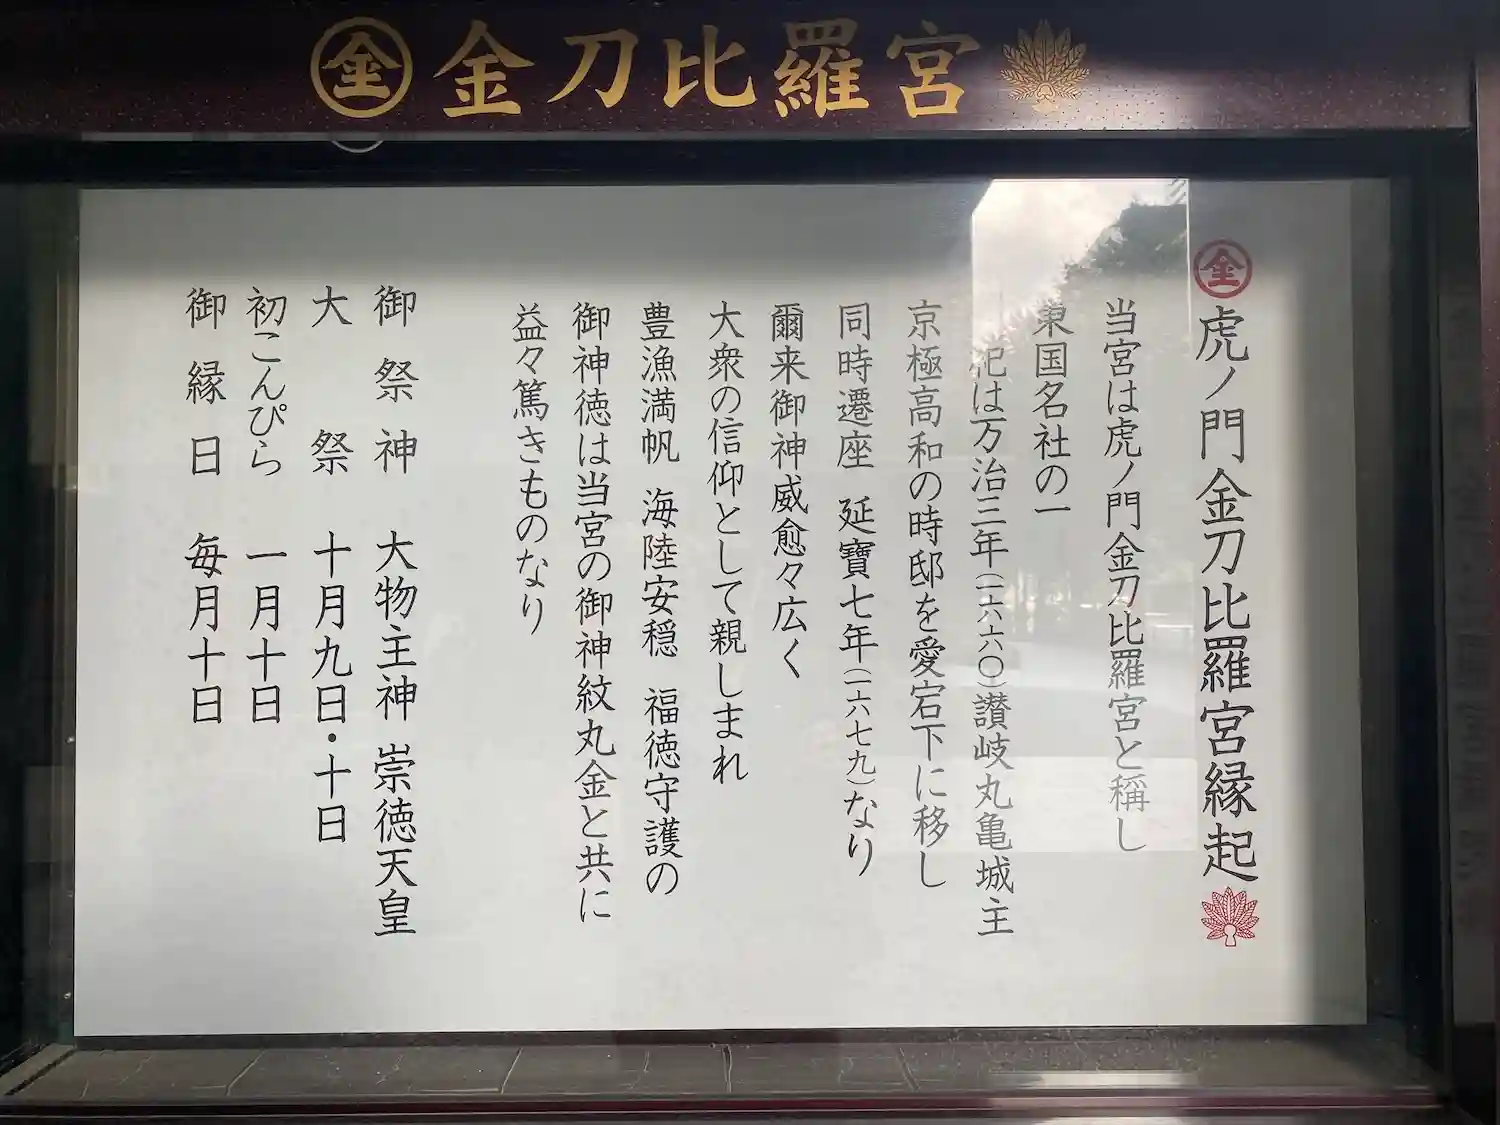 金 金刀比羅宮
金 虎ノ門金刀比羅宮縁起
当宮は虎ノ門金刀比羅宮と稱し
東国名社の一
祀は万治三年(一六六〇)讃岐丸亀城主
京極高和の時邸を愛宕下に移し
同時遷座 延寶七年(一六七九)なり
爾来御神威愈々広く
大衆の信仰として親しまれ
豊漁満帆 海陸安穏 福徳守護の
御神徳は当宮の御神紋丸金と共に
益々篤きものなり
御祭神 大物主神 崇徳天皇
大祭 十月九日・十日
初こんぴら 一月十日
御縁日 毎月十日